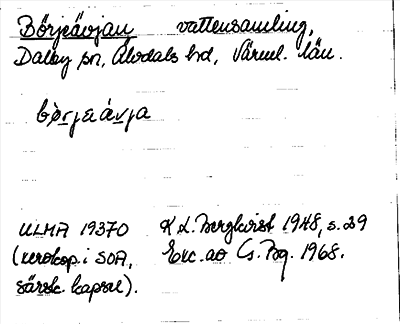 Börjeåvjan vattensamling,
Dalby sn, Älvdals hd, Värml. län.
bö̀rjeåvja
ULMA 19370 K L. Bergkvist 1948, s. 29
(xerokop. i SOA, Exc. av G. Bg. 1968.
särsk. kapsel).